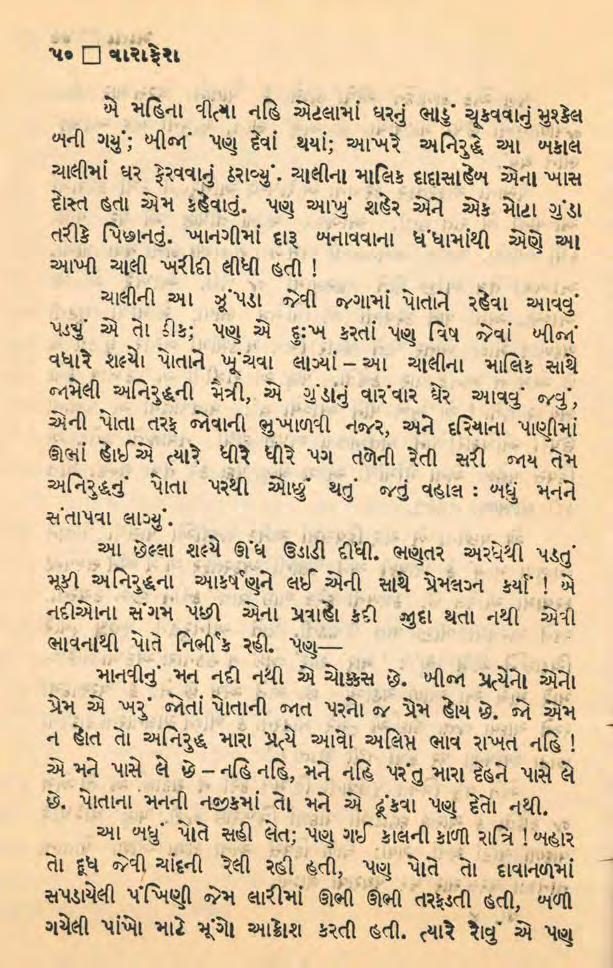 ૫૦ □ વારાફેરા
બે મહિના વીત્યા નહિ એટલામાં ઘરનું ભાડું ચૂકવવાનું મુશ્કેલ
બની ગયું; બીજાં પણ દેવાં થયાં; આખરે અનિરુદ્ધે આ બકાલ
ચાલીમાં ઘર ફેરવવાનું ઠરાવ્યું. ચાલીના માલિક દાદાસાહેબ એના ખાસ
દોસ્ત હતા એમ કહેવાતું. પણ આખું શહેર એને એક મોટા ગુંડા
તરીકે પિછાનતું. ખાનગીમાં દારૂ બનાવવાના ધંધામાંથી એણે આ
આખી ચાલી ખરીદી લીધી હતી !
ચાલીની આ ઝૂંપડા જેવી જગામાં પોતાને રહેવા આવવું
પડ્યું એ તો ઠીક; પણ એ દુઃખ કરતાં પણ વિષ જેવાં બીજાં
વધારે શલ્યો પોતાને ખૂંચવા લાગ્યાં – આ ચાલીના માલિક સાથે
જામેલી અનિરુદ્ધની મૈત્રી, એ ગુંડાનું વારંવાર ઘેર આવવું જવું,
એની પોતા તરફ જોવાની ભુખાળવી નજર, અને દરિયાના પાણીમાં
ઊભાં હોઈએ ત્યારે ધીરે ધીરે પગ તળેની રેતી સરી જાય તેમ
અનિરુદ્ધનું પોતા પરથી ઓછું થતું જતું વહાલ : બધું મનને
સંતાપવા લાગ્યું.
આ છેલ્લા શલ્યે ઊંઘ ઉડાડી દીધી. ભણતર અરધેથી પડતું
મૂકી અનિરુદ્ધના આકર્ષણને લઈ એની સાથે પ્રેમલગ્ન કર્યાં ! બે
નદીઓના સંગમ પછી એના પ્રવાહો કદી જુદા થતા નથી એવી
ભાવનાથી પોતે નિર્ભીક રહી. પણ—
માનવીનું મન નદી નથી એ ચોક્કસ છે. બીજા પ્રત્યેનો એનો
પ્રેમ એ ખરું જોતાં પોતાની જાત પરનો જ પ્રેમ હોય છે. જો એમ
ન હોત તો અનિરુદ્ધ મારા પ્રત્યે આવો અલિપ્ત ભાવ રાખત નહિ !
એ મને પાસે લે છે – નહિ નહિ, મને નહિ પરંતુ મારા દેહને પાસે લે
છે. પોતાના મનની નજીકમાં તો મને એ ઢૂંકવા પણ દેતો નથી.
આ બધું પોતે સહી લેત; પણ ગઈ કાલની કાળી રાત્રિ ! બહાર
તો દૂધ જેવી ચાંદની રેલી રહી હતી, પણ પોતે તો દાવાનળમાં
સપડાયેલી પંખિણી જેમ લારીમાં ઊભી ઊભી તરફડતી હતી, બળી
ગયેલી પાંખો માટે મૂંગો આક્રોશ કરતી હતી. ત્યારે રોવું એ પણ